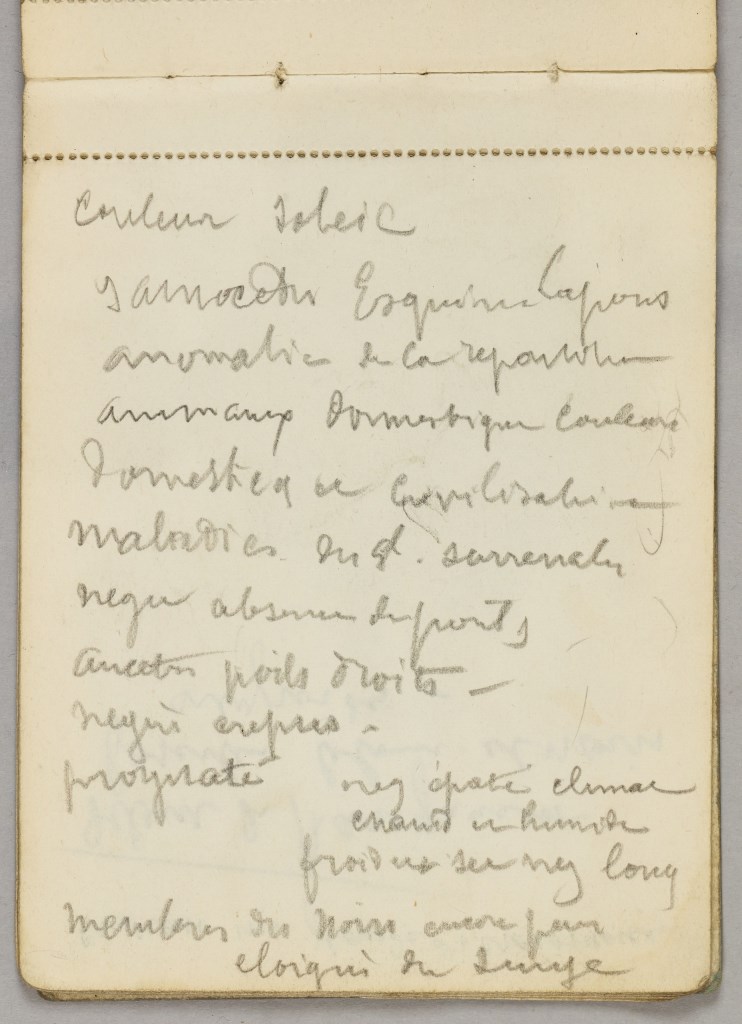 Couleur soleil
Samoedes Esquim Lapons
anomalie de la repartition
animaux domestique couleurs
Domesticq et civilisation
maladies des gl. surrenales
negre absence de
ancetres poils droits —
negres crepus -
prognate nez épaté climat
chaud et humide
froid et sec nez long
membres des Noirs encore plus
eloignés du singe